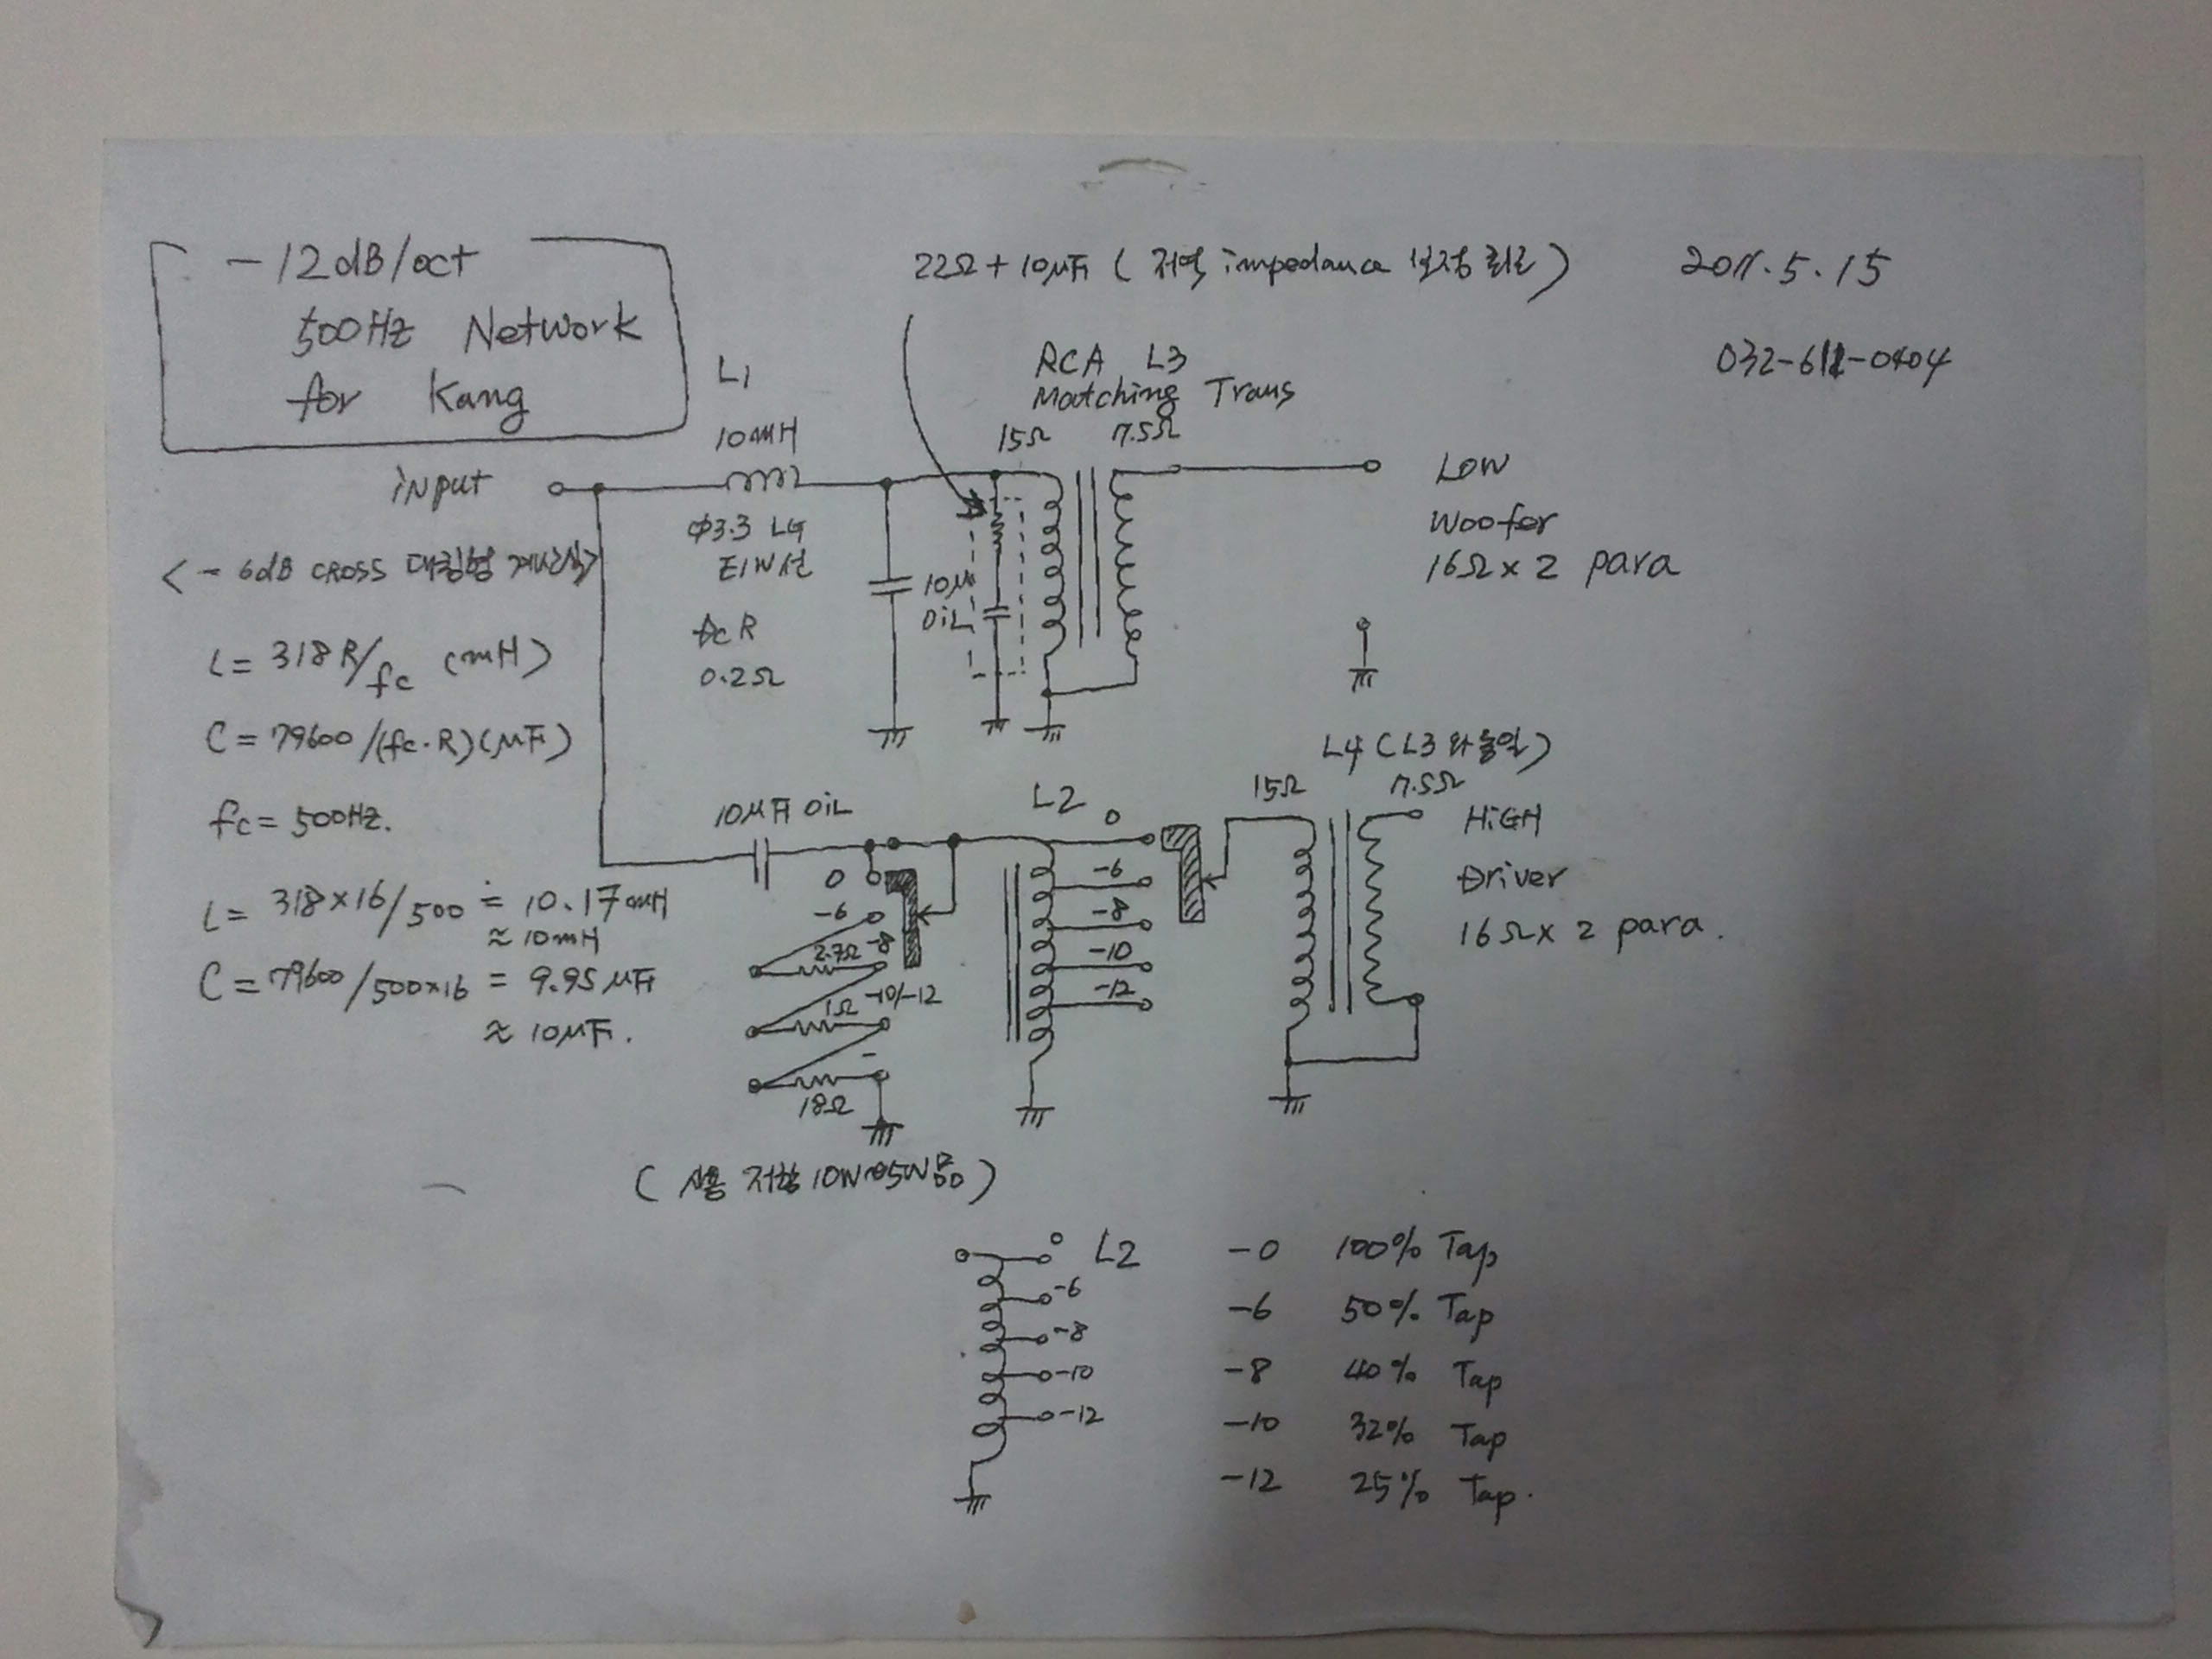 -12dB/oct
500Hz Network
for Kang
22Ω + 10μF ( 저역 impedance 보정 회로 )
2011.5.15
032-611-0404
L1
10mH
RCA L3
Matching Trans
15Ω 7.5Ω
input
φ3.3 LG
EIW선
DCR
0.2Ω
10μ
OIL
LOW
Woofer
16Ω x 2 para
< -6dB CROSS 대칭형 계산식 >
L = 318R/fc (mH)
C = 79600/(fc·R)(μF)
fc = 500Hz.
L = 318×16/500 ≒ 10.17mH
≈ 10mH
C = 79600/500×16 = 9.95μF
≈ 10μF.
10μF OIL
L2
0
-6
-8
-10
-12
0
-6
2.7Ω -8
1Ω -10/-12
-
18Ω
L4 (L3와 동일)
15Ω 7.5Ω
HIGH
Driver
16Ω x 2 para.
( 사용 저항 10W~5W품 )
0 L2
-6
-8
-10
-12
-0 100% Tap
-6 50% Tap
-8 40% Tap
-10 32% Tap
-12 25% Tap.